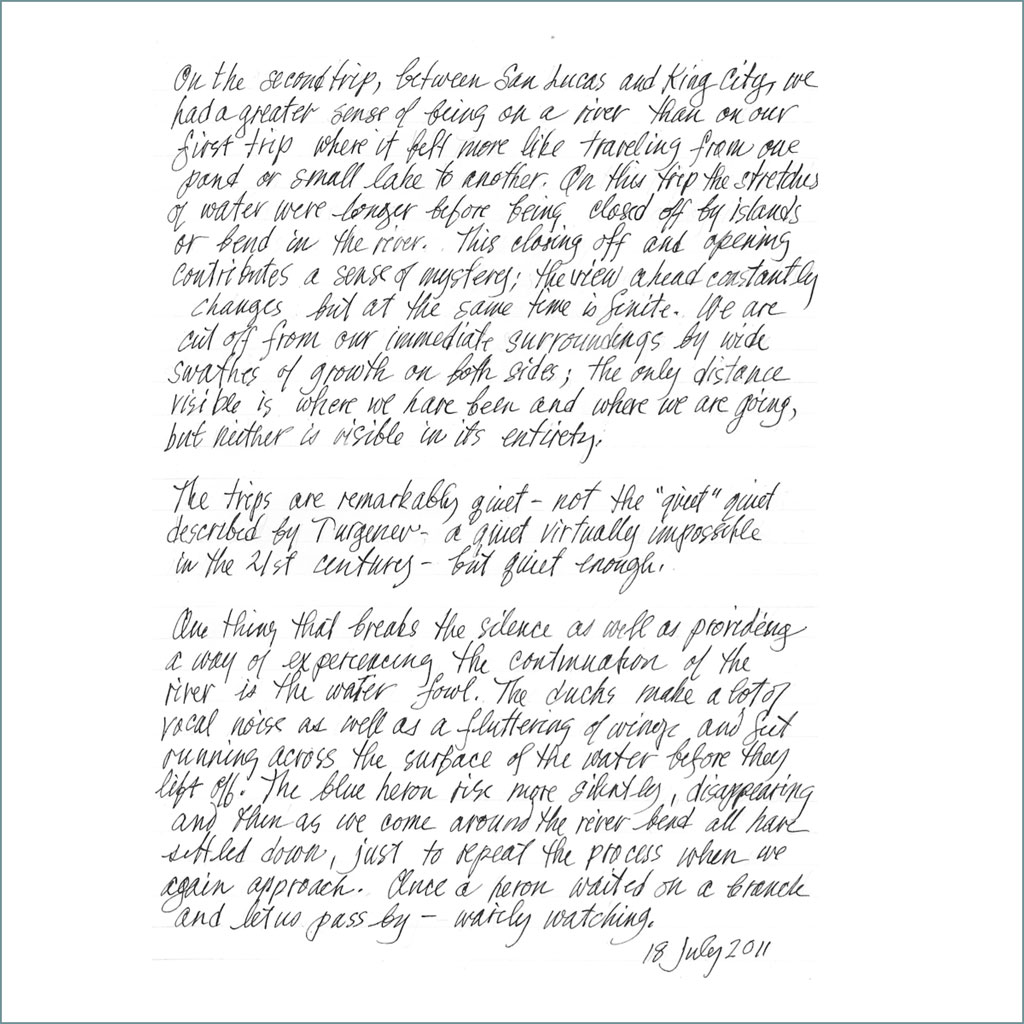 On the second trip, between San Lucas and King City, we
had a greater sense of being on a river than on our
first trip where it felt more like traveling from one
pond or small lake to another. On this trip the stretches
of water were longer before being closed off by islands
or bend in the river. This closing off and opening
contributes a sense of mystery; the view ahead constantly
changes but at the same time is finite. We are
cut off from our immediate surroundings by wide
swathes of growth on both sides; the only distance
visible is where we have been and where we are going,
but neither is visible in its entirety.
The trips are remarkably quiet - not the "quiet" quiet
described by Turgenev - a quiet virtually impossible
in the 21st century - but quiet enough.
One thing that breaks the silence as well as providing
a way of experiencing the continuation of the
river is the water fowl. The ducks make a lot of
vocal noise as well as a fluttering of wings and feet
running across the surface of the water before they
lift off. The blue heron rise more silently, disappearing
and then as we come around the river bend all have
settled down, just to repeat the process when we
again approach. Once a heron waited on a branch
and let us pass by - warily watching.
18 July 2011